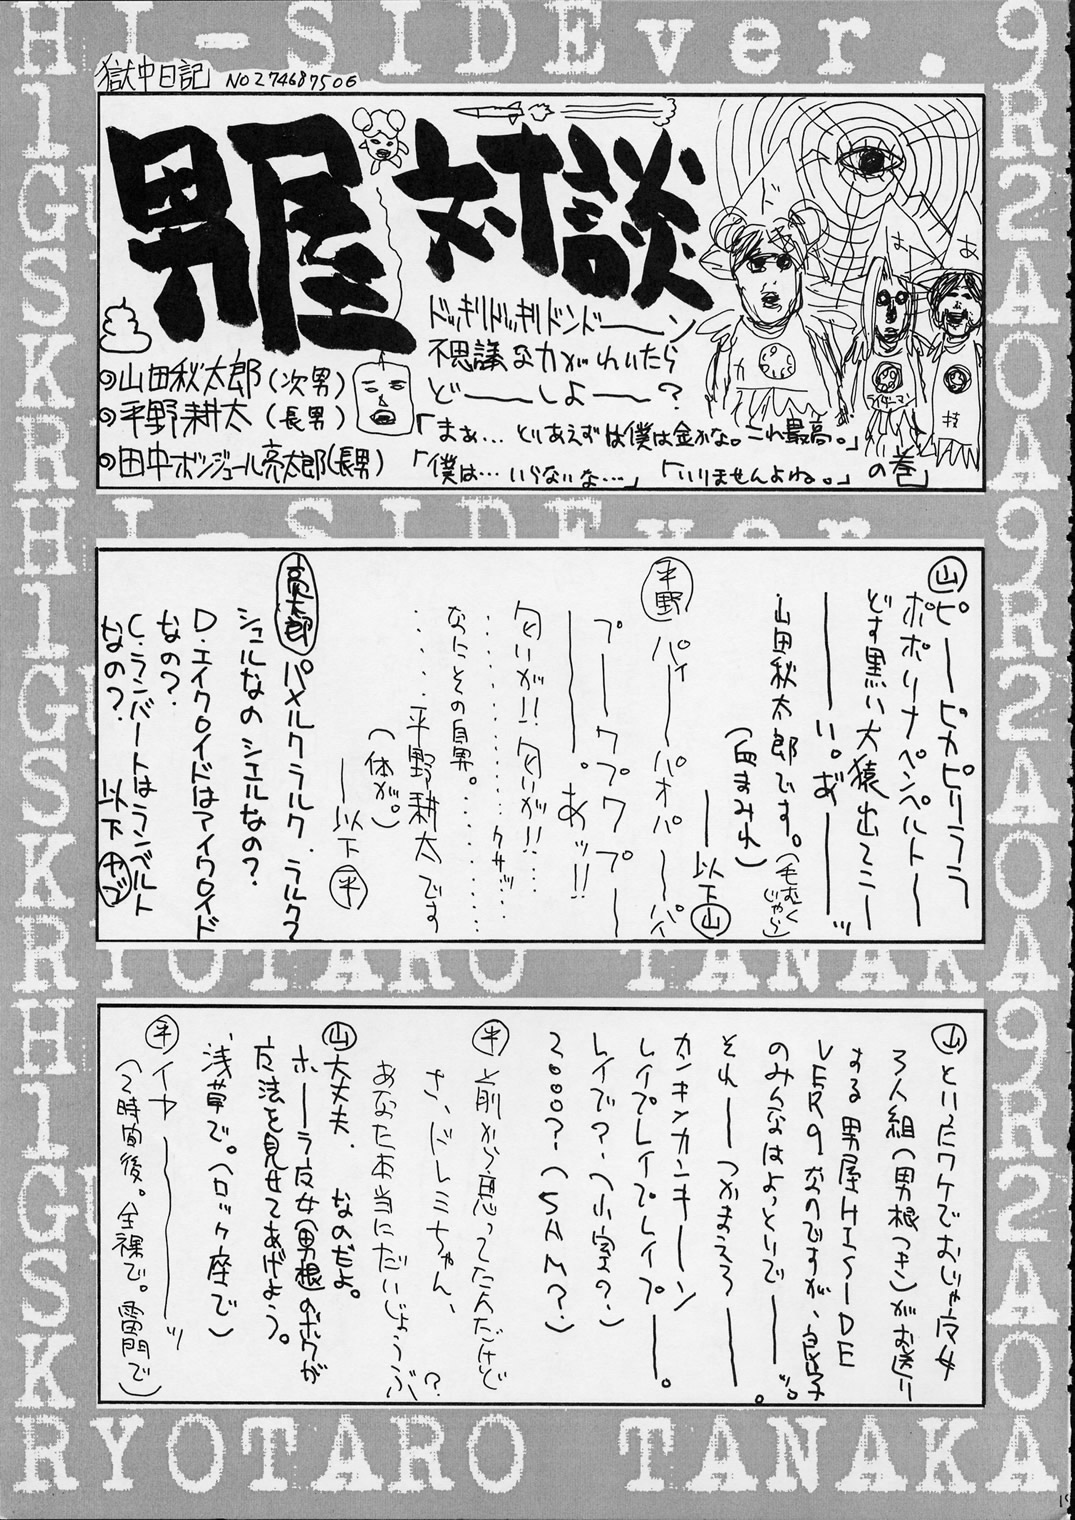 HI-SIDEver.9
獄中日記 NO274687506
男屋対談
ドッキリドッキリドンドーーン
不思議な力がわいたら
どーーしよーー?
「まぁ…とりあえずは僕は金かな。これ最高。」
「僕は…いらないな…」「いりませんよね。」の巻
◎山田秋太郎(次男)
◎平野耕太(長男)
◎田中ボンジュール亮太郎(長男)
山 ピーーピカピリララ
ポポリナペンペルトーー
どす黒い大猿出てこー
ーーーい。あ"ーーーッ
山田秋太郎です。(毛むくじゃら)
(血まみれ)
ーー以下山
平野 パイーーパオパーーパイ
プーーワプワプーー
ーーーー。あッ!!
匂いが!!匂いが!!…
……クサッ……
なにその自男。
……平野耕太です
(体が。)
ーー以下平
亮太郎 パメルクラルク・ラルク?
シュルなのシエルなの?
D・エイクロイドはアイクロイド
なの?
C・ランバートはランベルト
なの? 以下ヤブ
山 といったワケでおじゃ魔女
3人組(男根つき)がお送り
する男屋HISーDE
VER9なのですが、良い子
のみんなはよっといでーーッ。
それーーつかまろろーーー。
カンキンカンキーーン
レイプレイプレイプーーー。
レイプ?(小室の?)
2000?(SAM?)
平 前から思ってたんだけど
さ、ドレミちゃん、
あなた本当にだいじょうぶ?
山 大丈夫. なのだよ。
ホーーラ魔女(男根のボクが
魔法を見せてあげよう。
浅草で。(ロック座で)
平 イヤーーーーッ
(2時間後。全裸で。雷門で)
RYOTARO TANAKA